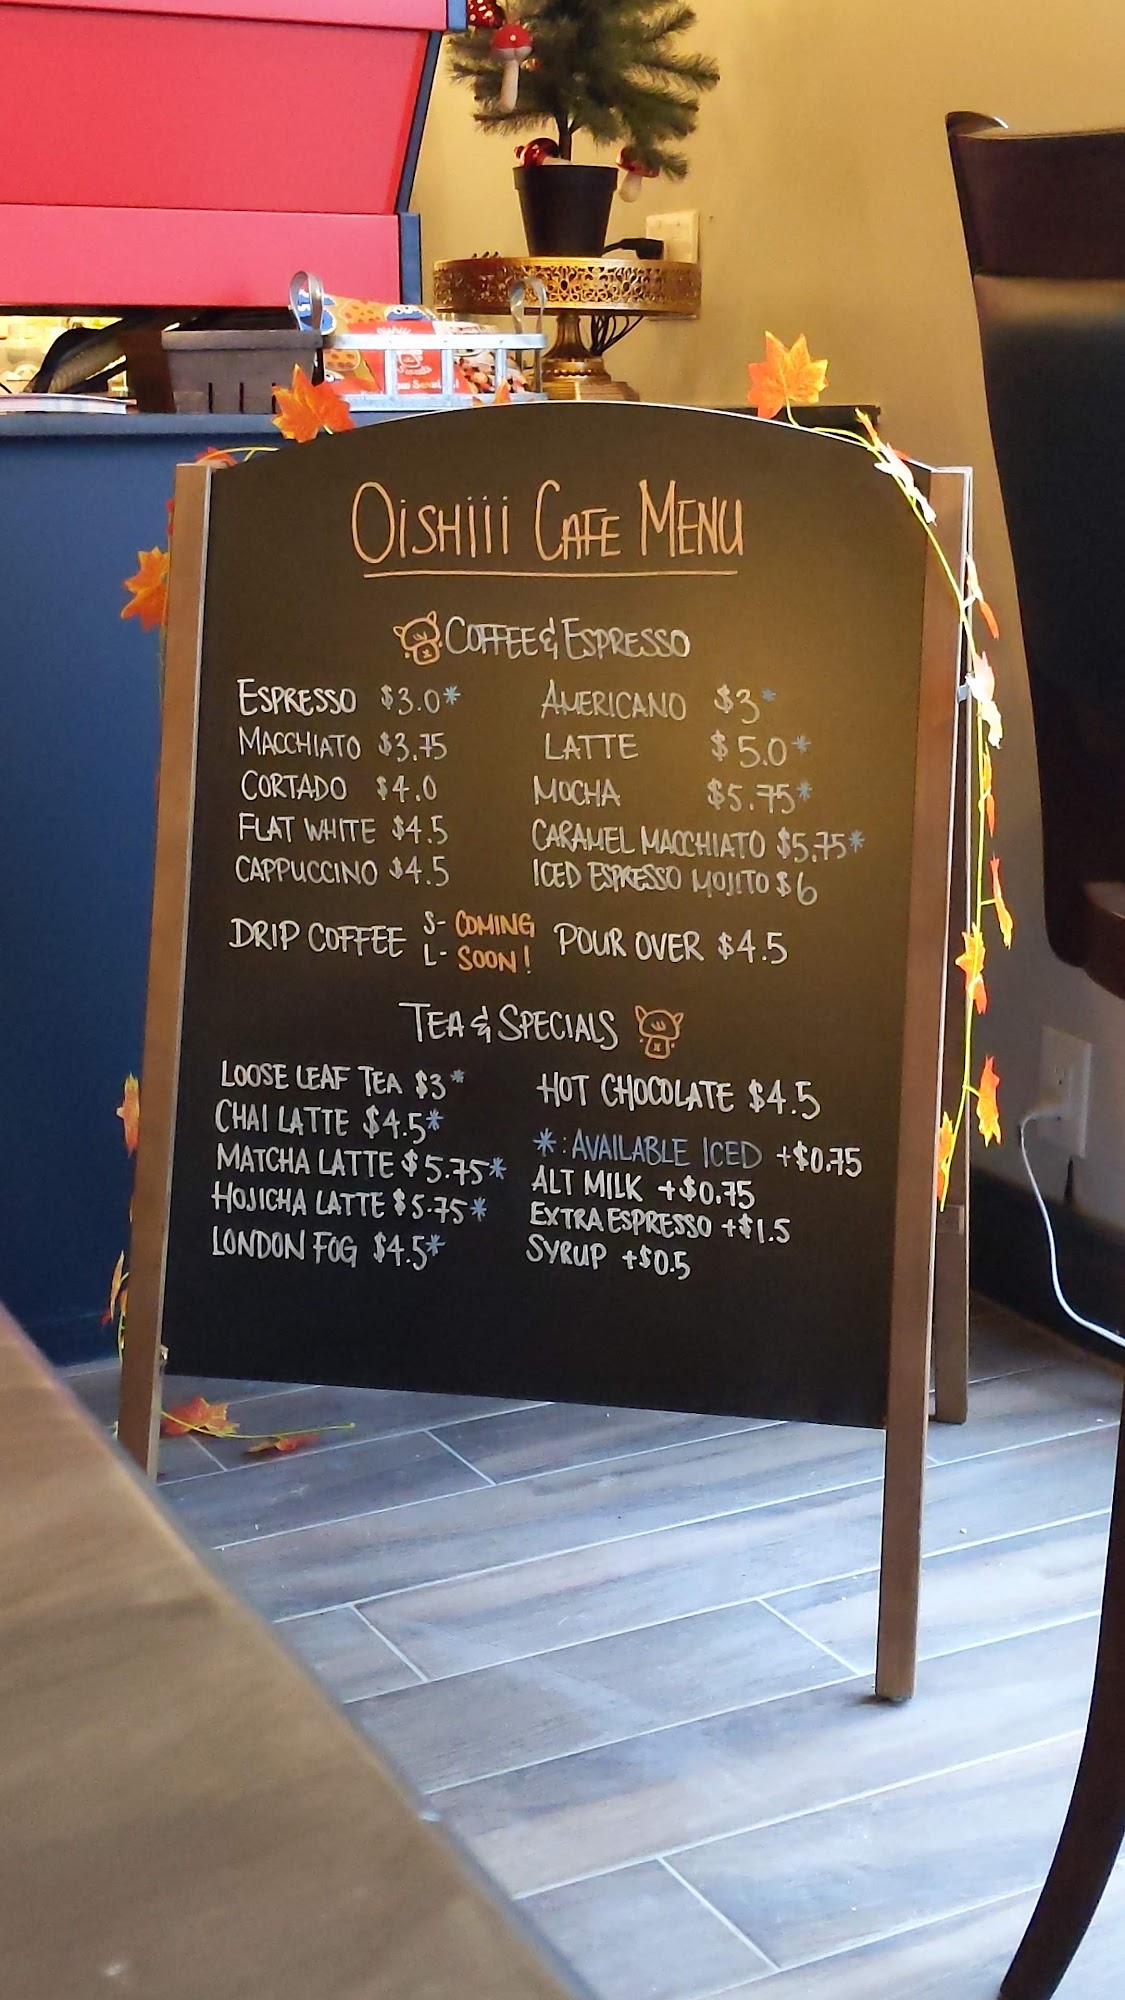 OiSHiii CAFE MENU
COFFEE & ESPRESSO
ESPRESSO $3.0*
MACCHIATO $3.75
CORTADO $4.0
FLAT WHITE $4.5
CAPPUCCINO $4.5
AMERICANO $3*
LATTE $5.0*
MOCHA $5.75*
CARAMEL MACCHIATO $5.75*
ICED ESPRESSO MOJITO $6
DRIP COFFEE S- COMING
L- SOON!
POUR OVER $4.5
TEA & SPECIALS
LOOSE LEAF TEA $3*
CHAI LATTE $4.5*
MATCHA LATTE $5.75*
HOJICHA LATTE $5.75*
LONDON FOG $4.5*
HOT CHOCOLATE $4.5
*: AVAILABLE ICED +$0.75
ALT MILK +$0.75
EXTRA ESPRESSO +$1.5
SYRUP +$0.5